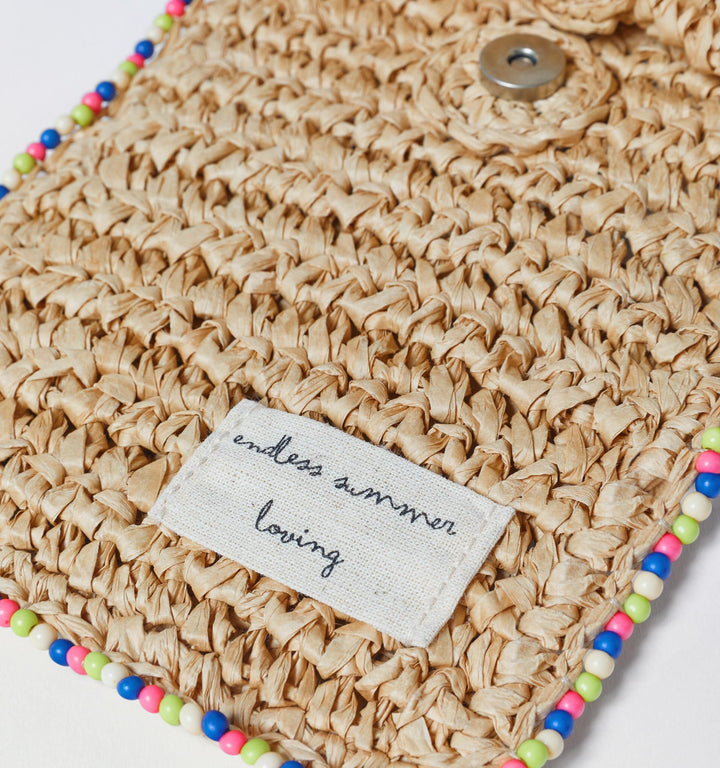 endless summer
loving